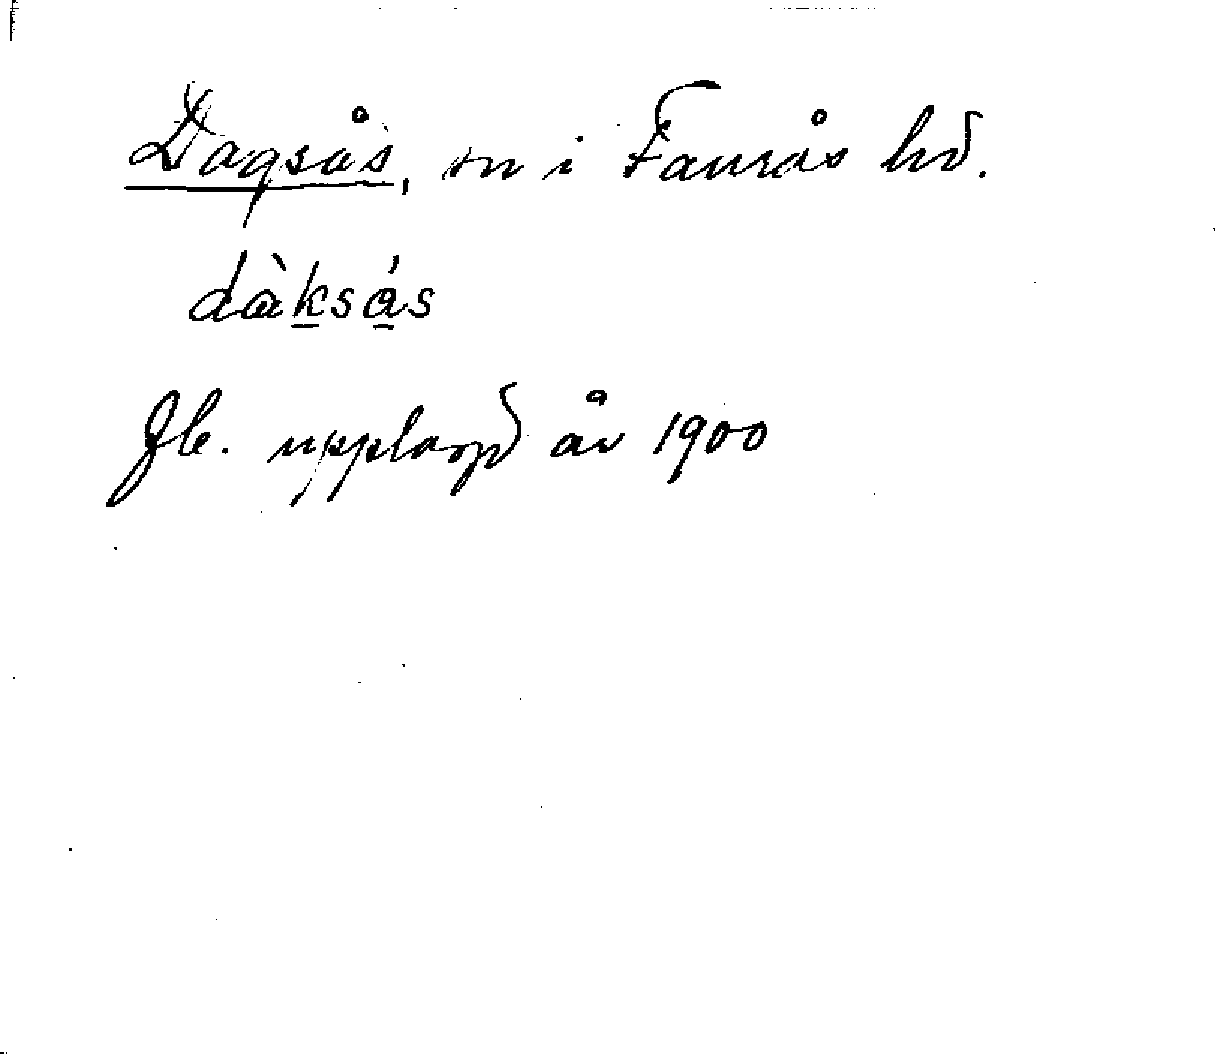 Dagsås, sn i Faurås hd.
dàksás
Jb. upplagd år 1900